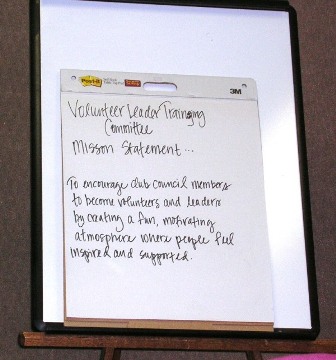 Post-it
3M
Volunteer Leader Training
Committee
Misson Statement...
To encourage club council members
to become volunteers and leaders
by creating a fun, motivating
atmosphere where people feel
inspired and supported.